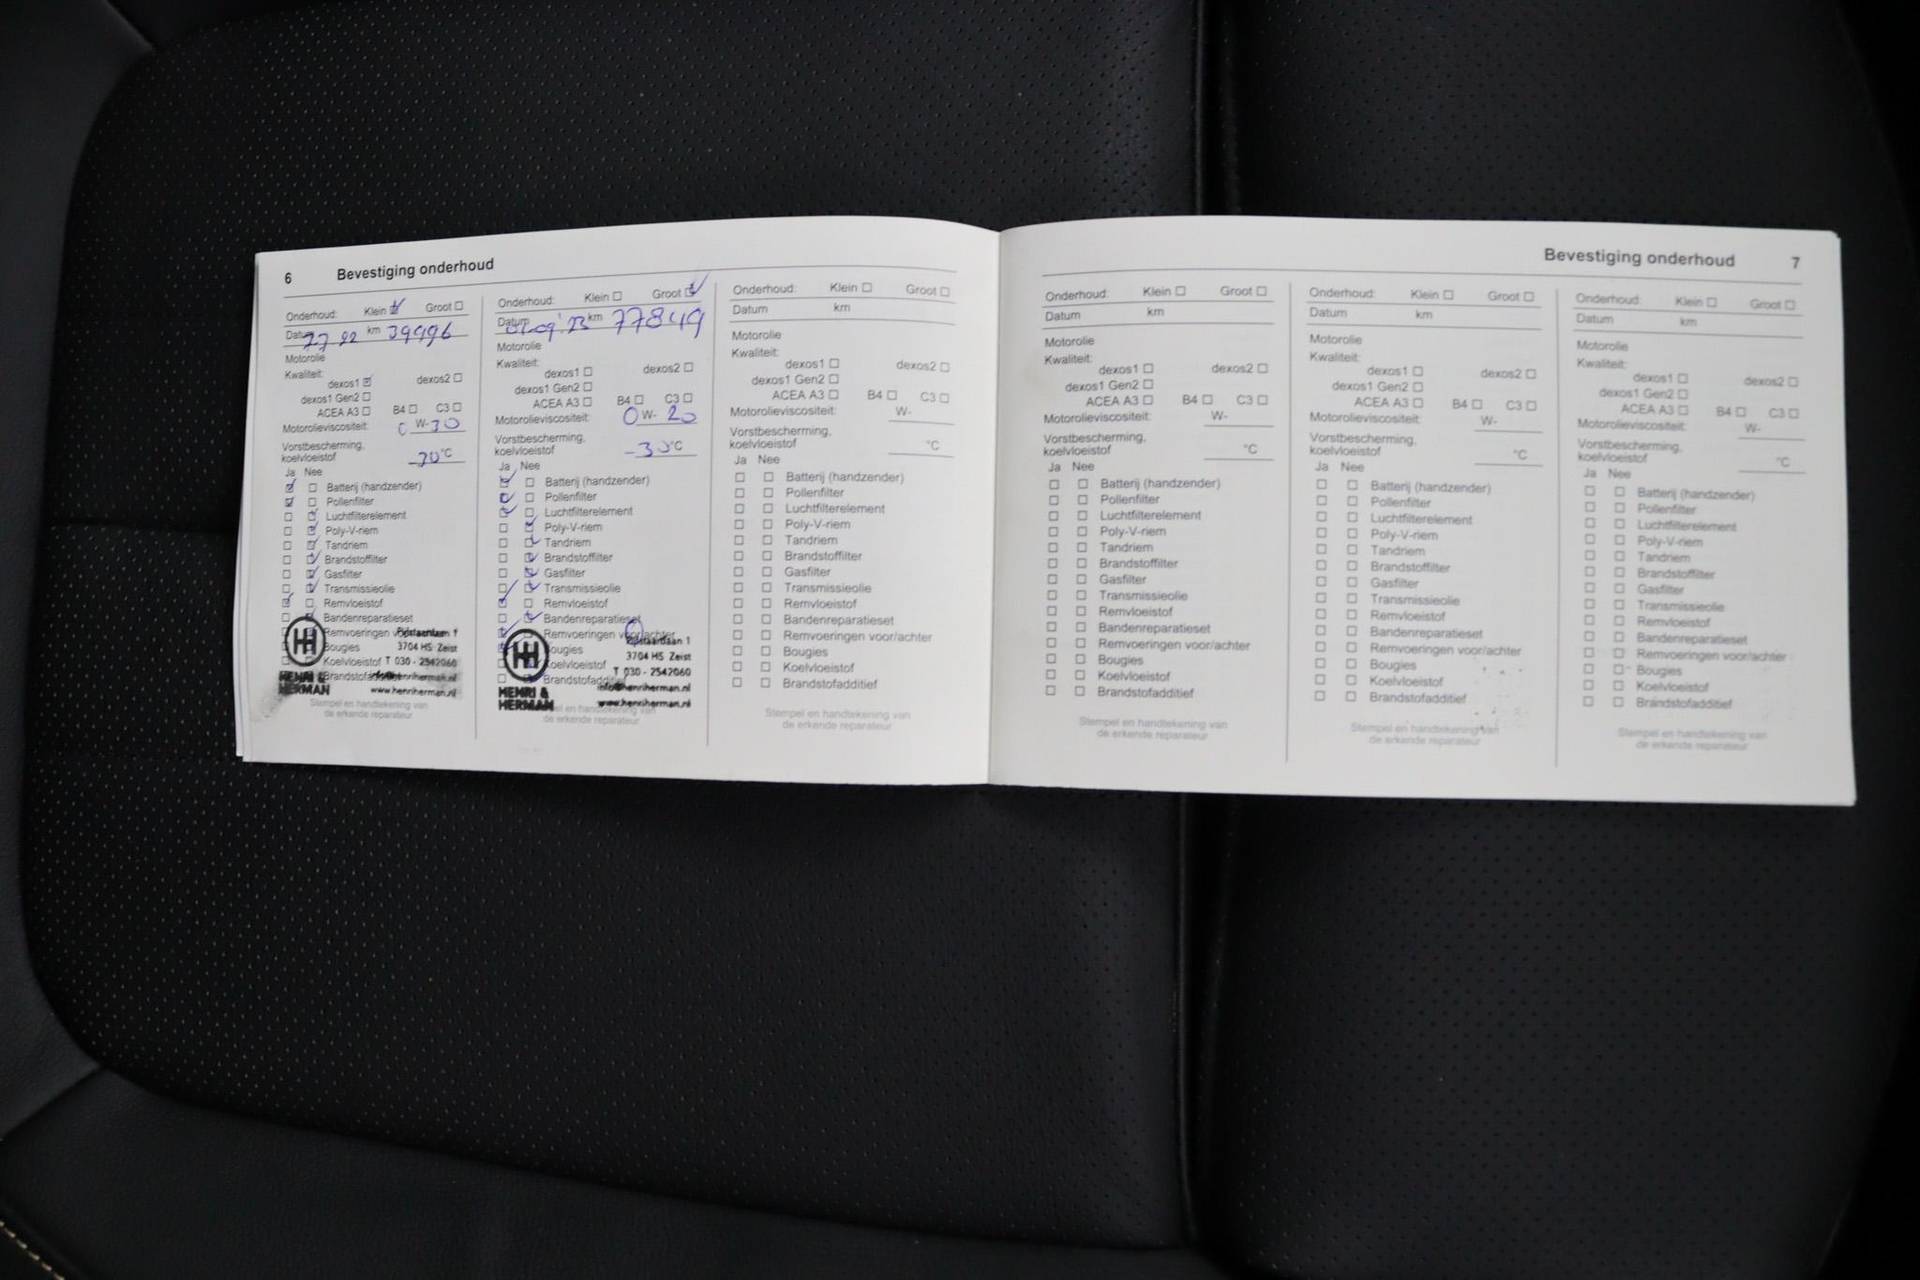 6 Bevestiging onderhoud
Onderhoud: Klein Groot
km 39996
Motorolie
Kwaliteit:
dexos1 dexos2
dexos1 Gen2
ACEA A3 B4 C3
Motorolieviscositeit: 0 W-30
Vorstbescherming,
koelvloeistof °C
Ja Nee
Batterij (handzender)
Pollenfilter
Luchtfilterelement
Poly-V-riem
Tandriem
Brandstoffilter
Gasfilter
Transmissieolie
Remvloeistof
Bandenreparatieset
Remvoeringen
Bougies 3704 HS Zeist
Koelvloeistof T 030 - 2542060
HENRI &
HERMAN www.henriherman.nl
Stempel en handtekening van
de erkende reparateur
Onderhoud: Klein Groot
Datum km 77849
Motorolie
Kwaliteit:
dexos1 dexos2
dexos1 Gen2
ACEA A3 B4 C3
Motorolieviscositeit: 0 W- 20
Vorstbescherming,
koelvloeistof -30 °C
Ja Nee
Batterij (handzender)
Pollenfilter
Luchtfilterelement
Poly-V-riem
Tandriem
Brandstoffilter
Gasfilter
Transmissieolie
Remvloeistof
Bandenreparatieset
Remvoeringen voor/achter
Bougies 3704 HS Zeist
Koelvloeistof T 030 - 2542060
HENRI & info@henriherman.nl
HERMAN www.henriherman.nl
de erkende reparateur
Onderhoud: Klein Groot
Datum km
Motorolie
Kwaliteit:
dexos1 dexos2
dexos1 Gen2
ACEA A3 B4 C3
Motorolieviscositeit: W-
Vorstbescherming,
koelvloeistof °C
Ja Nee
Batterij (handzender)
Pollenfilter
Luchtfilterelement
Poly-V-riem
Tandriem
Brandstoffilter
Gasfilter
Transmissieolie
Remvloeistof
Bandenreparatieset
Remvoeringen voor/achter
Bougies
Koelvloeistof
Brandstofadditief
Stempel en handtekening van
de erkende reparateur
Bevestiging onderhoud 7
Onderhoud: Klein Groot
Datum km
Motorolie
Kwaliteit:
dexos1 dexos2
dexos1 Gen2
ACEA A3 B4 C3
Motorolieviscositeit: W-
Vorstbescherming,
koelvloeistof °C
Ja Nee
Batterij (handzender)
Pollenfilter
Luchtfilterelement
Poly-V-riem
Tandriem
Brandstoffilter
Gasfilter
Transmissieolie
Remvloeistof
Bandenreparatieset
Remvoeringen voor/achter
Bougies
Koelvloeistof
Brandstofadditief
Stempel en handtekening van
de erkende reparateur
Onderhoud: Klein Groot
Datum km
Motorolie
Kwaliteit:
dexos1 dexos2
dexos1 Gen2
ACEA A3 B4 C3
Motorolieviscositeit: W-
Vorstbescherming,
koelvloeistof °C
Ja Nee
Batterij (handzender)
Pollenfilter
Luchtfilterelement
Poly-V-riem
Tandriem
Brandstoffilter
Gasfilter
Transmissieolie
Remvloeistof
Bandenreparatieset
Remvoeringen voor/achter
Bougies
Koelvloeistof
Brandstofadditief
Stempel en handtekening van
de erkende reparateur
Onderhoud: Klein Groot
Datum km
Motorolie
Kwaliteit:
dexos1 dexos2
dexos1 Gen2
ACEA A3 B4 C3
Motorolieviscositeit: W-
Vorstbescherming,
koelvloeistof °C
Ja Nee
Batterij (handzender)
Pollenfilter
Luchtfilterelement
Poly-V-riem
Tandriem
Brandstoffilter
Gasfilter
Transmissieolie
Remvloeistof
Bandenreparatieset
Remvoeringen voor/achter
Bougies
Koelvloeistof
Brandstofadditief
Stempel en handtekening van
de erkende reparateur